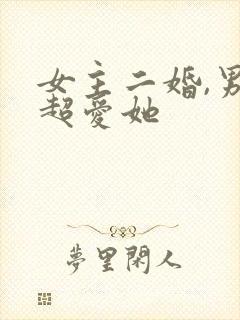 女主二婚,男
超爱她
夢里閑人